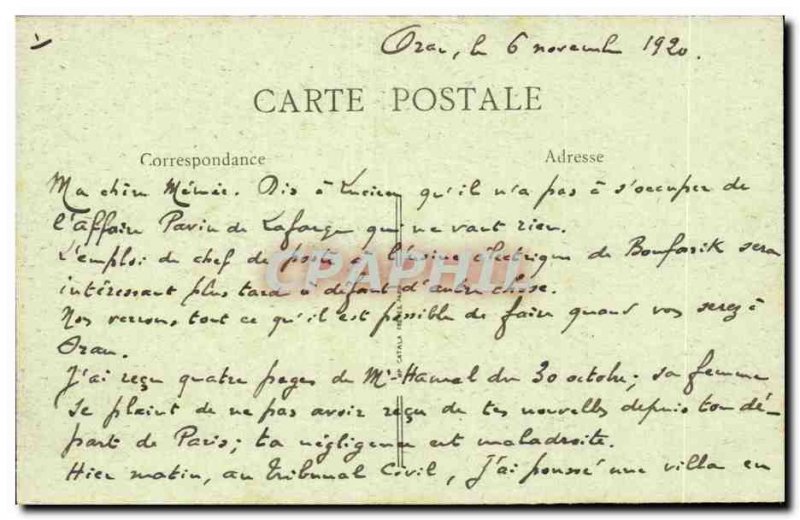 Oran, le 6 novembre 1920.
CARTE POSTALE
Correspondance
Adresse
Ma chère Mémée. Dis à Lucien qu'il n'a pas à s'occuper de
l'affaire Pavin de Lafarge qui ne vaut rien.
L'emploi de chef de poste à l'usine électrique de Boufarik sera
intéressant plus tard à défaut d'autre chose.
Nos verrons tout ce qu'il est possible de faire quand vos serez à
Oran.
J'ai reçu quatre pages de Mr Hamel du 30 octobre; sa femme
se plaint de ne pas avoir reçu de tes nouvelles depuis ton dé-
part de Paris; ta négligence est maladroite.
Hier matin, au Tribunal Civil, j'ai poussé une villa en
CPAPHIL